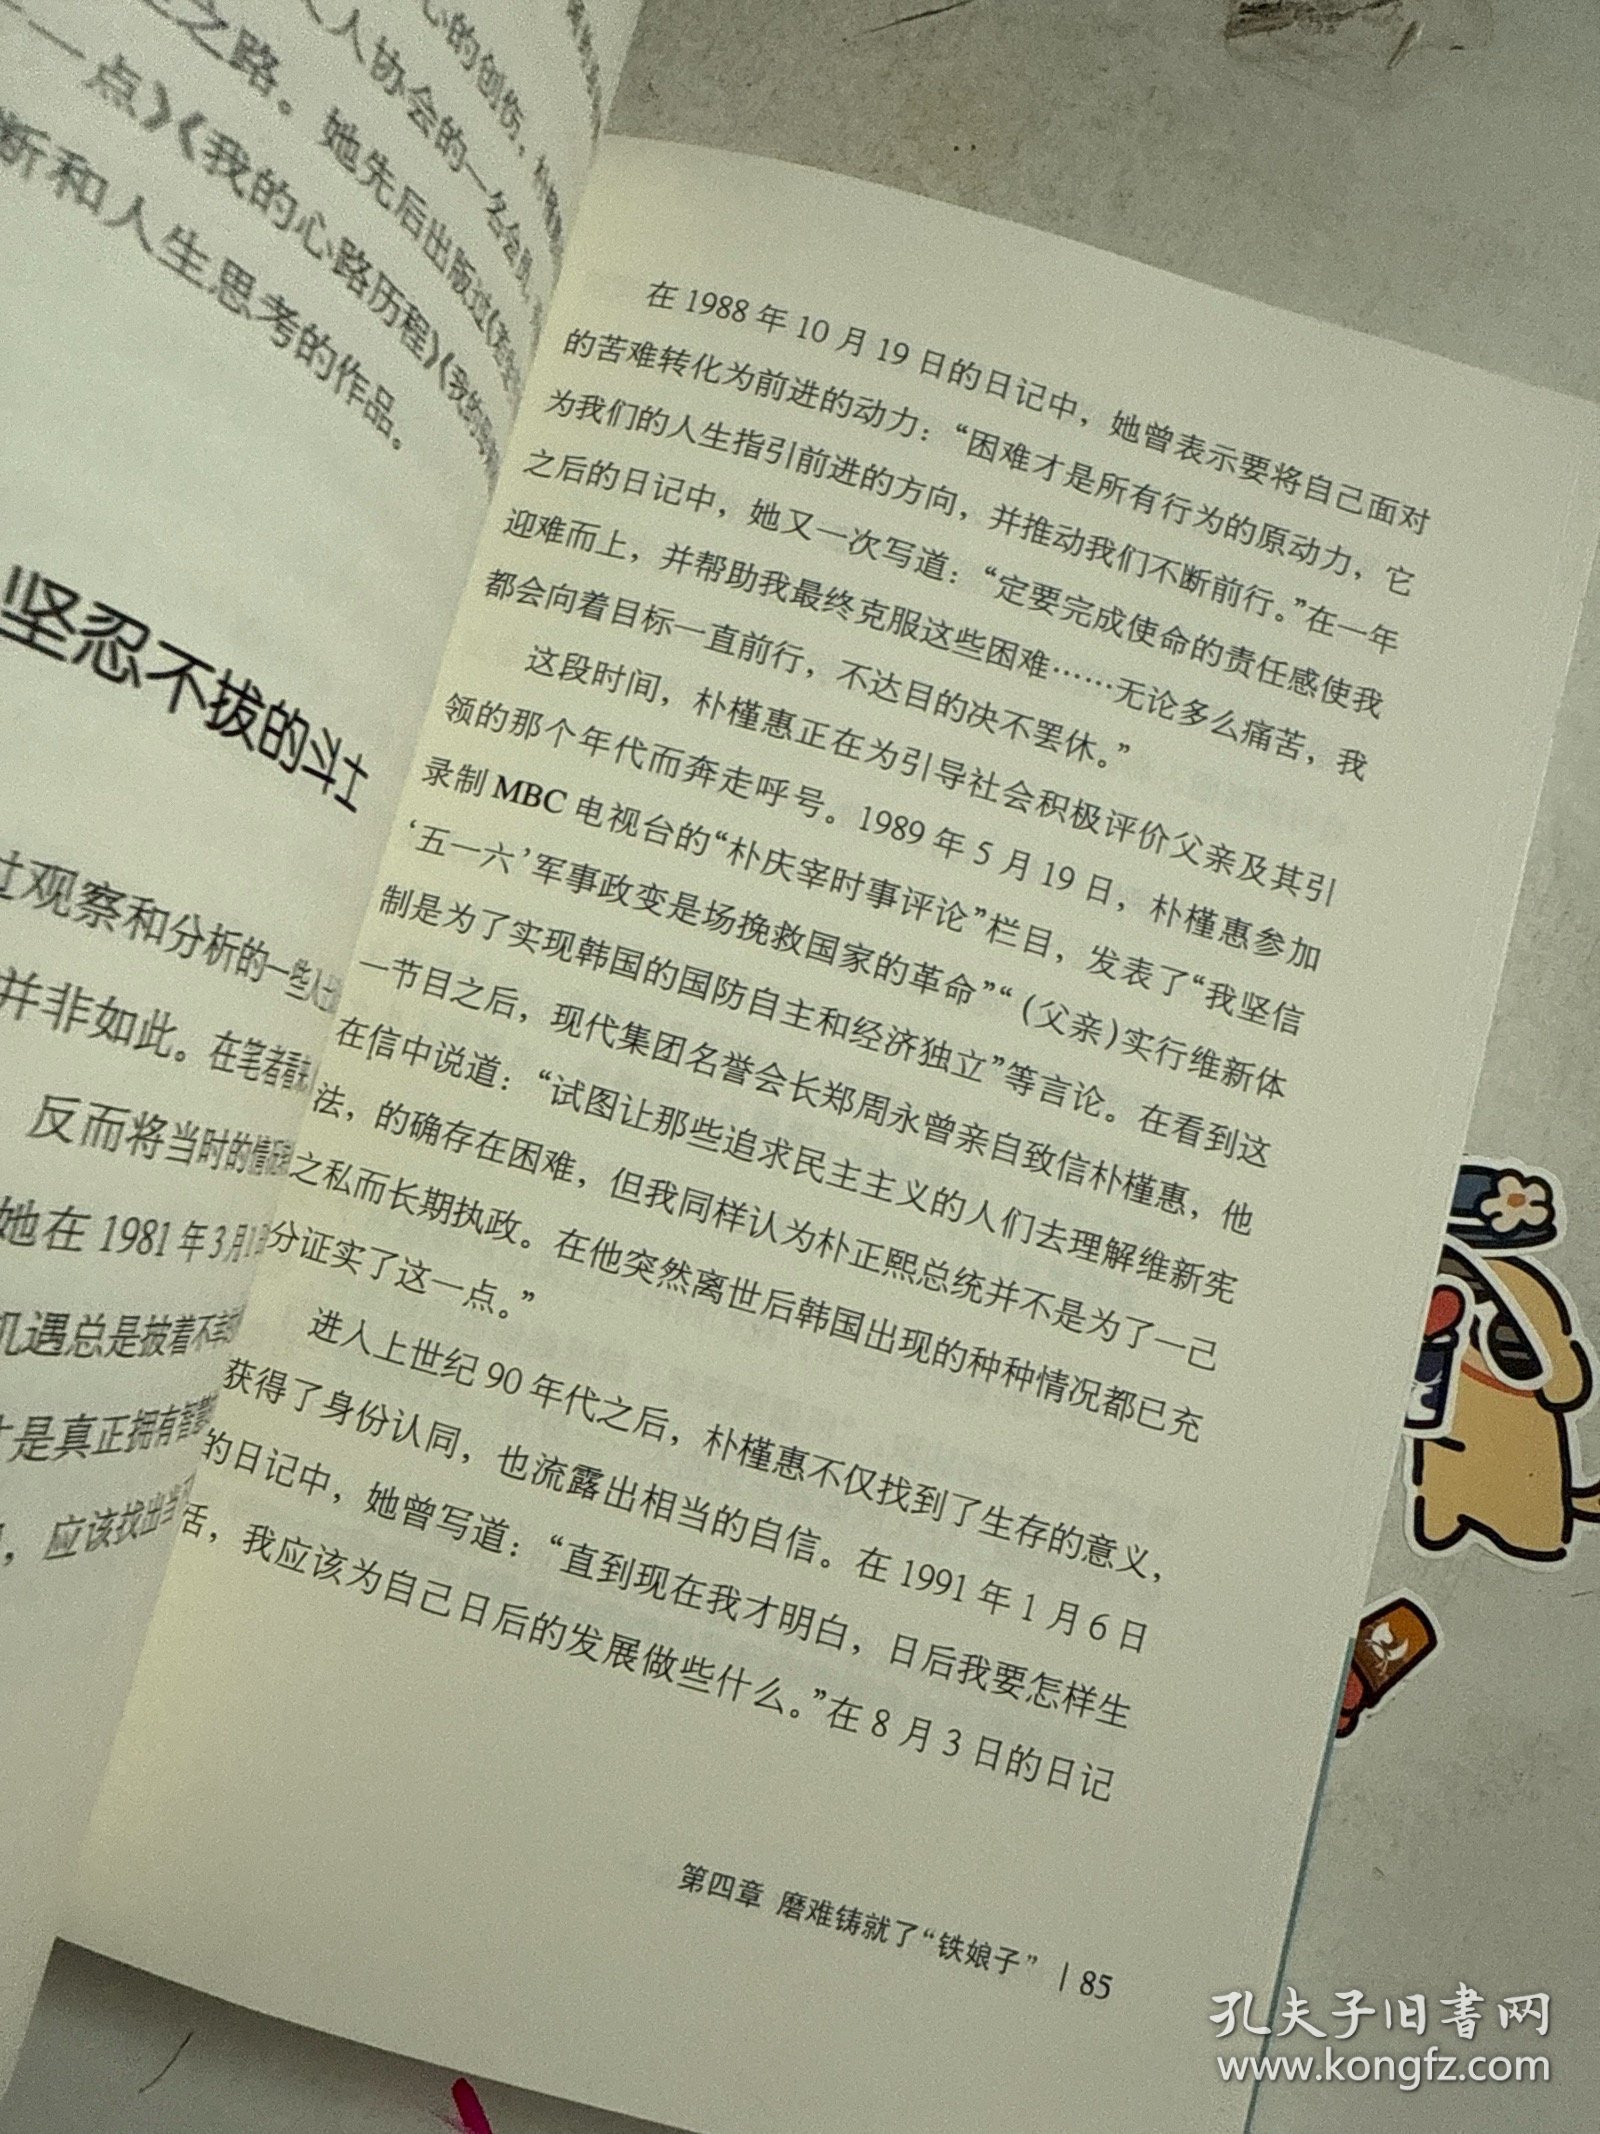 心的创伤，
人协会的一名会员，
之路。她先后出版过
一点》《我的心路历程》《我的
断和人生思考的作品。
坚忍不拔的斗士
观察和分析的一些
并非如此。在笔者看来
反而将当时的情况
她在 1981 年 3 月
机遇总是披着不幸的
是真正拥有智慧
，应该找出当
在 1988 年 10 月 19 日的日记中，她曾表示要将自己面对
的苦难转化为前进的动力：“困难才是所有行为的原动力，它
为我们的人生指引前进的方向，并推动我们不断前行。”在一年
之后的日记中，她又一次写道：“定要完成使命的责任感使我
迎难而上，并帮助我最终克服这些困难……无论多么痛苦，我
都会向着目标一直前行，不达目的决不罢休。”
这段时间，朴槿惠正在为引导社会积极评价父亲及其引
领的那个年代而奔走呼号。1989 年 5 月 19 日，朴槿惠参加
录制 MBC 电视台的“朴庆宰时事评论”栏目，发表了“我坚信
‘五一六’军事政变是场挽救国家的革命”“（父亲）实行维新体
制是为了实现韩国的国防自主和经济独立”等言论。在看到这
一节目之后，现代集团名誉会长郑周永曾亲自致信朴槿惠，他
在信中说道：“试图让那些追求民主主义的人们去理解维新宪
法，的确存在困难，但我同样认为朴正熙总统并不是为了一己
之私而长期执政。在他突然离世后韩国出现的种种情况都已充
分证实了这一点。”
进入上世纪 90 年代之后，朴槿惠不仅找到了生存的意义，
获得了身份认同，也流露出相当的自信。在 1991 年 1 月 6 日
的日记中，她曾写道：“直到现在我才明白，日后我要怎样生
活，我应该为自己日后的发展做些什么。”在 8 月 3 日的日记
第四章 磨难铸就了“铁娘子” | 85
孔夫子旧书网
www.kongfz.com